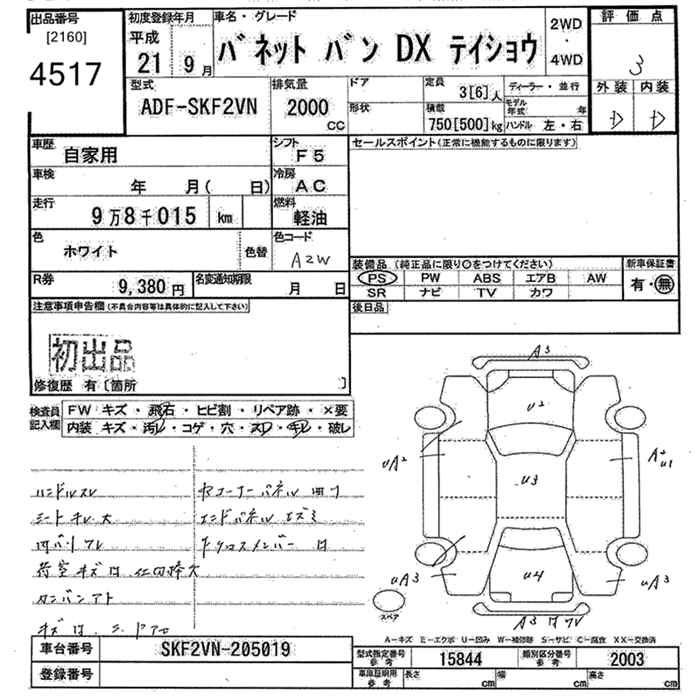 出品番号 初度登録年月 車名・グレード 2WD・4WD 評価点
[2160] 平成
4517 21 9月 バネット バン DX テイショウ 3
型式 排気量 ドア 定員 3[6]人 ディーラー・並行 外装 内装
ADF-SKF2VN 2000 CC 形状 積載 750[500]kg モデル年式 年 D D
ハンドル 左・右
車歴 自家用 シフト F5 セールスポイント(正常に機能するものに限ります)
車検 年 月( 日) 冷房 AC
走行 9万8千015 km 燃料 軽油
色 ホワイト 色替 色コード A2W
装備品(純正品に限り○をつけてください) 新車保証書
PS PW ABS エアB AW 有・無
SR ナビ TV カワ
R券 9,380円 名変通知期限 月 日
注意事項申告欄(不具合内容等は具体的に記入して下さい) 後日品
初出品
修復歴 有〔箇所 〕
検査員記入欄 FW キズ・飛石・ヒビ割・リペア跡・×要
内装 キズ・汚レ・コゲ・穴・スレ・キレ・破レ
ハンドルスレ
シートキレ大
荷室キズ凹
カンバンアト
A3
U2
UA2
U3
A2 U1
UA3
U4
UA3
A3
スペア
A-キズ E-エクボ U-凹み W-補修跡 S-サビ C-腐食 XX-交換済
車台番号 SKF2VN-205019
登録番号
型式指定番号 参考 15844 類別区分番号 参考 2003
車庫証明用 参考 長さ cm 幅 cm 高さ cm